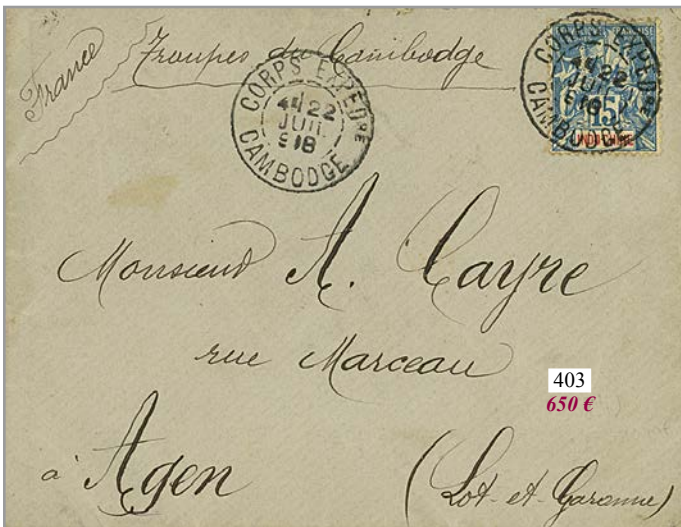 France
Troupes du Cambodge
CORPS EXPEDRE
22
JUIL
98
CAMBODGE
CORPS EXPEDRE
22
JUIL
98
CAMBODGE
15
INDO-CHINE
Monsieur A. Cayre
rue Marceau
403
650 €
à Agen
(Lot-et-Garonne)